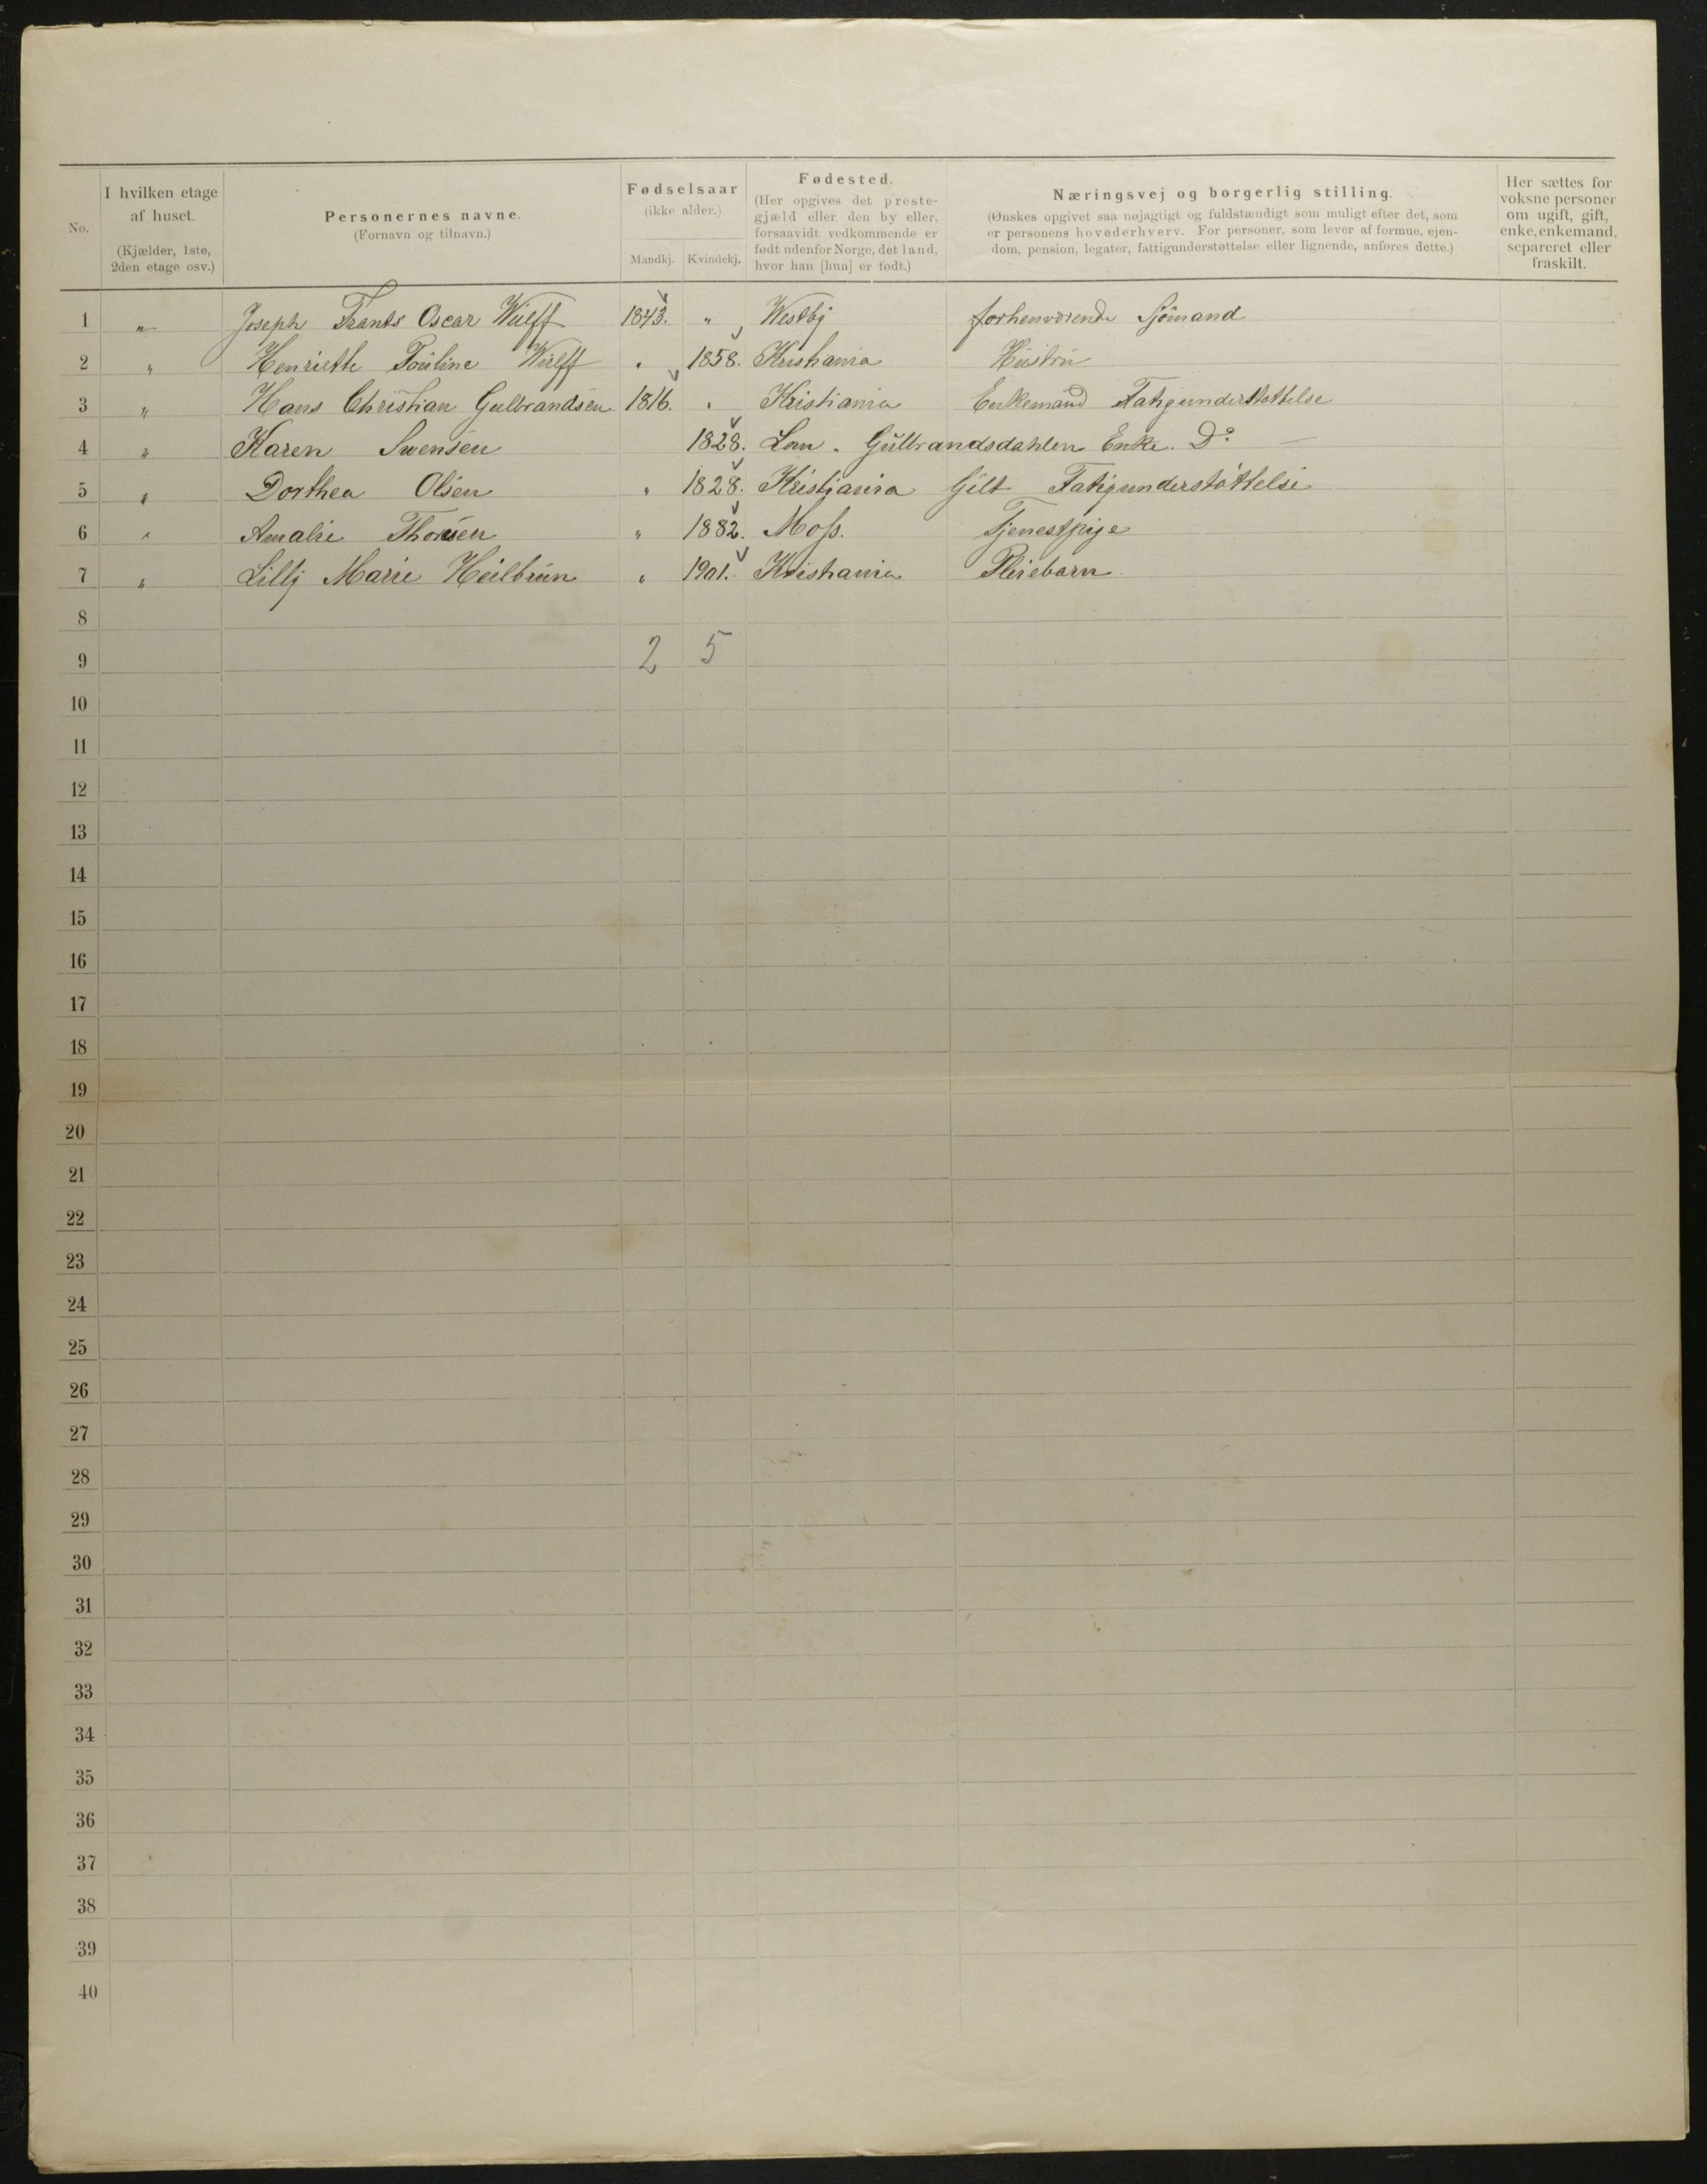 No.
I hvilken etage af huset. (Kjælder, 1ste, 2den etage osv.)
Personernes navne. (Fornavn og tilnavn.)
Fødselsaar (ikke alder.)
Mandkj. Kvindekj.
Fødested. (Her opgives det prestegjæld eller den by eller, forsaavidt vedkommende er født udenfor Norge, det land, hvor han [hun] er født.)
Næringsvej og borgerlig stilling. (Ønskes opgivet saa nøjagtigt og fuldstændigt som muligt efter det, som er personens hovederhverv. For personer, som lever af formue, ejendom, pension, legater, fattigunderstøttelse eller lignende, anføres dette.)
Her sættes for voksne personer om ugift, gift, enke, enkemand, separeret eller fraskilt.
1 " Joseph Frants Oscar Wulff 1843. " Westbj forhenværende Sjömand
2 " Henriette Pouline Wulff " 1858. Kristiania Hustru
3 " Hans Christian Gulbrandsen 1816. " Kristiania Enkemand Fatigunderstøttelse
4 " Karen Swensen 1828. Lom. Gulbrandsdahlen Enke. Do
5 " Dorthea Olsen " 1828. Kristjania Gift Fatigunderstøttelse
6 " Amalie Thorsen " 1882. Moss. Tjenestpige
7 " Lillj Marie Heilbrun " 1901. Kristiania Pleiebarn
8
9 2 5
10
11
12
13
14
15
16
17
18
19
20
21
22
23
24
25
26
27
28
29
30
31
32
33
34
35
36
37
38
39
40